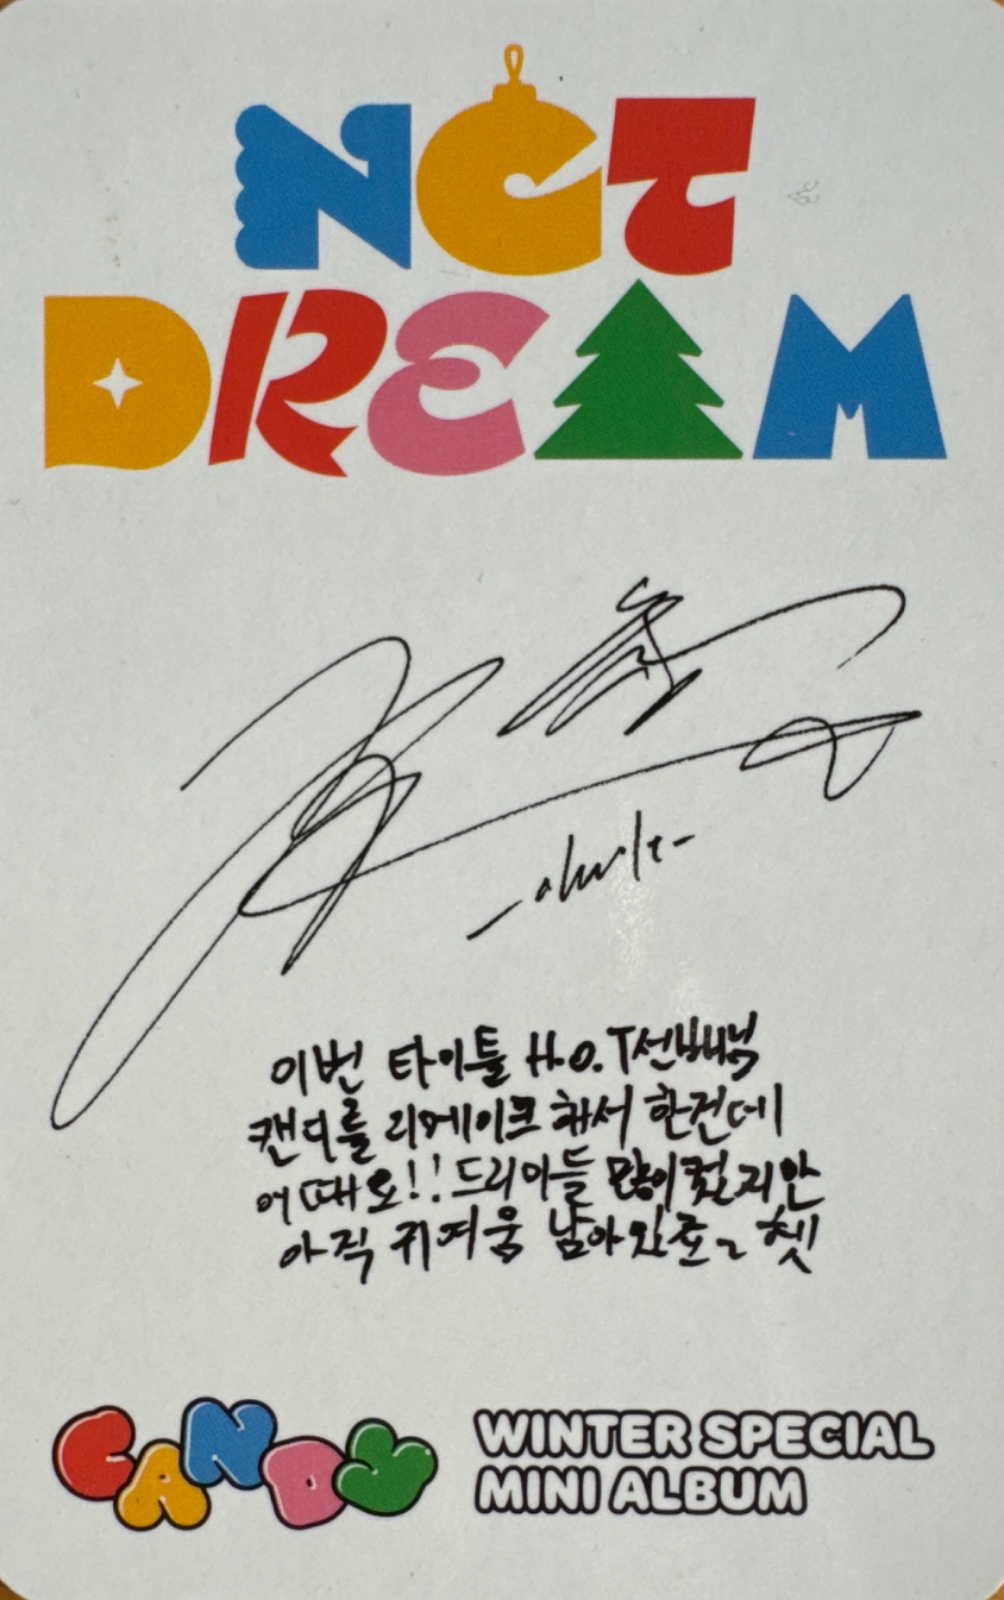 NCT
DREAM
이번 타이틀 H.O.T선배님
캔디를 리메이크 해서 한건데
어때요!! 드리미들 많이컸지만
아직 귀여움 남아있죠ㄹ 쳇
CANDY
WINTER SPECIAL
MINI ALBUM